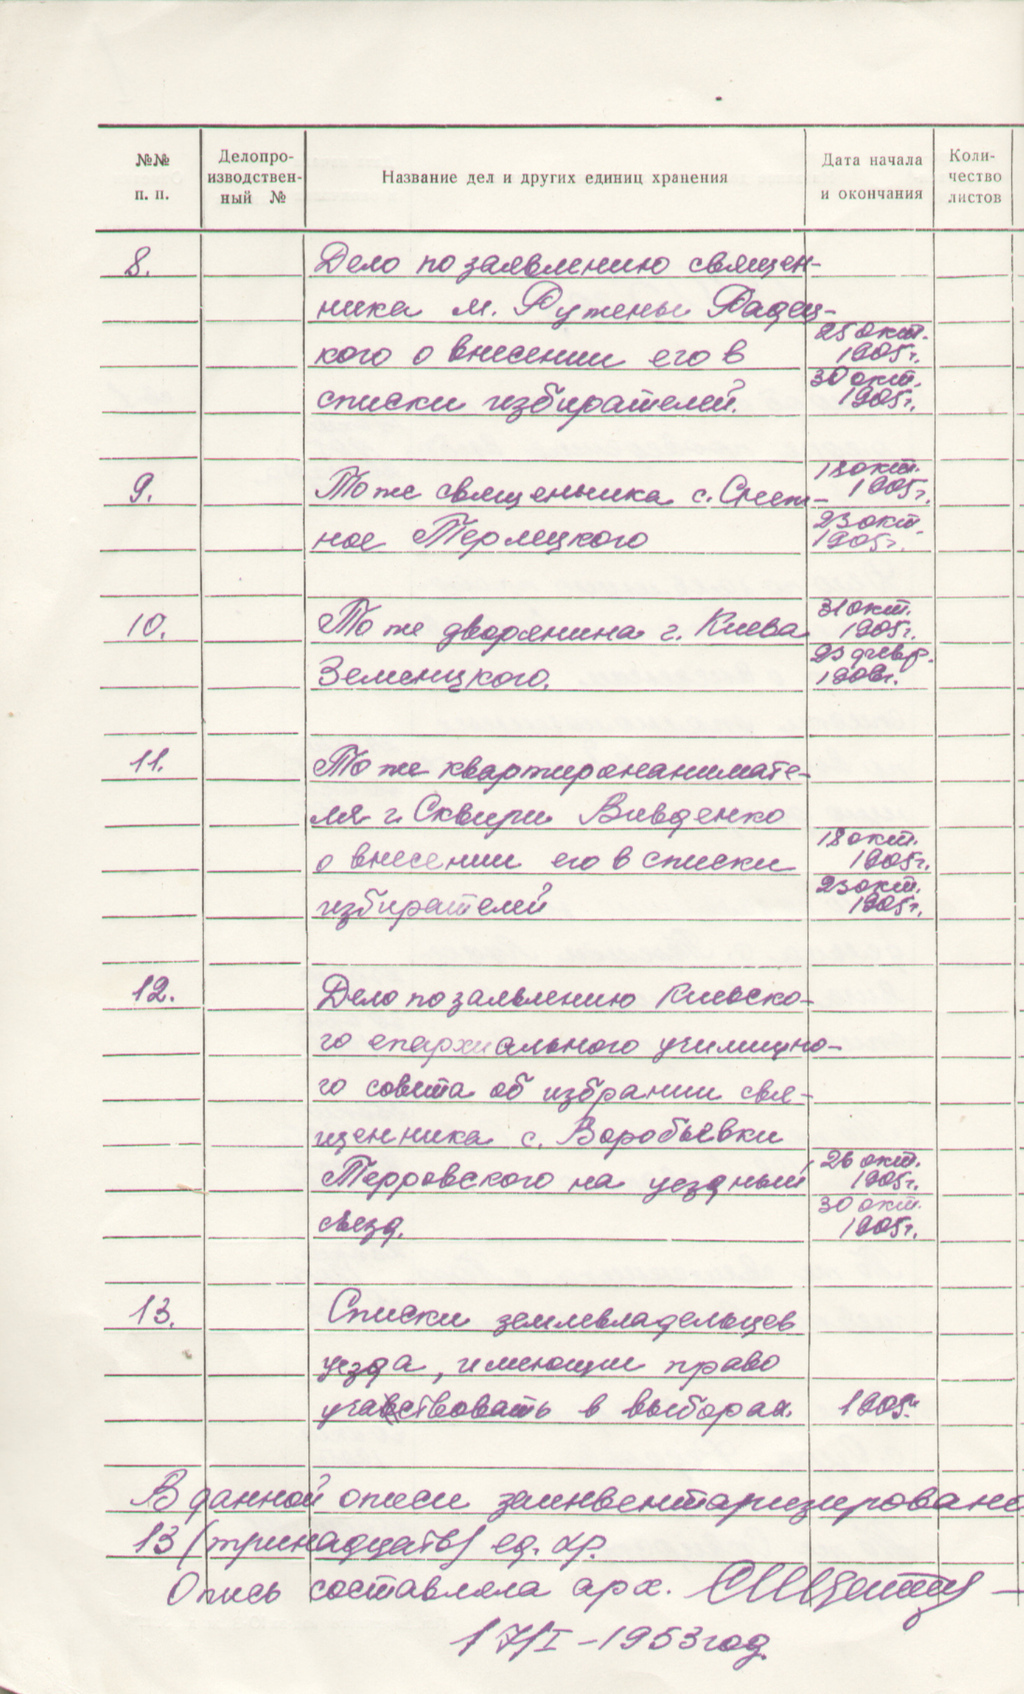 №№ п. п.
Делопро-
изводствен-
ный №
Название дел и других единиц хранения
Дата начала
и окончания
Коли-
чество
листов
8. Дело по заявлению священ-
ника м. Ружены Радец-
кого о внесении его в
списки избирателей.
25 окт.
1905г.
30 окт.
1905г.
9. То же священника с.
ное Терлецкого
18 окт.
1905г.
23 окт
1905г.
10. То же дворянина г. Киева
Земенцкого.
31 окт.
1905г.
23 февр.
11. То же квартиронанимате-
ля г. Сквири Вивденко
о внесении его в списки
избирателей
18 окт.
1905г.
23 окт.
1905г.
12. Дело по заявлению Киевско-
го епархиального училищно-
го совета об избрании свя-
щенника с. Воробьевки
Терровского на уездный
съезд.
26 окт.
1905г.
30 окт.
1905г.
13. Списки землевладельцев
уезда, имеющи право
участвовать в выборах.
1905г.
В данной описи заинвентаризировано
13 (тринадцать) ед. хр.
Опись составляла арх.
17/I-1953 год.